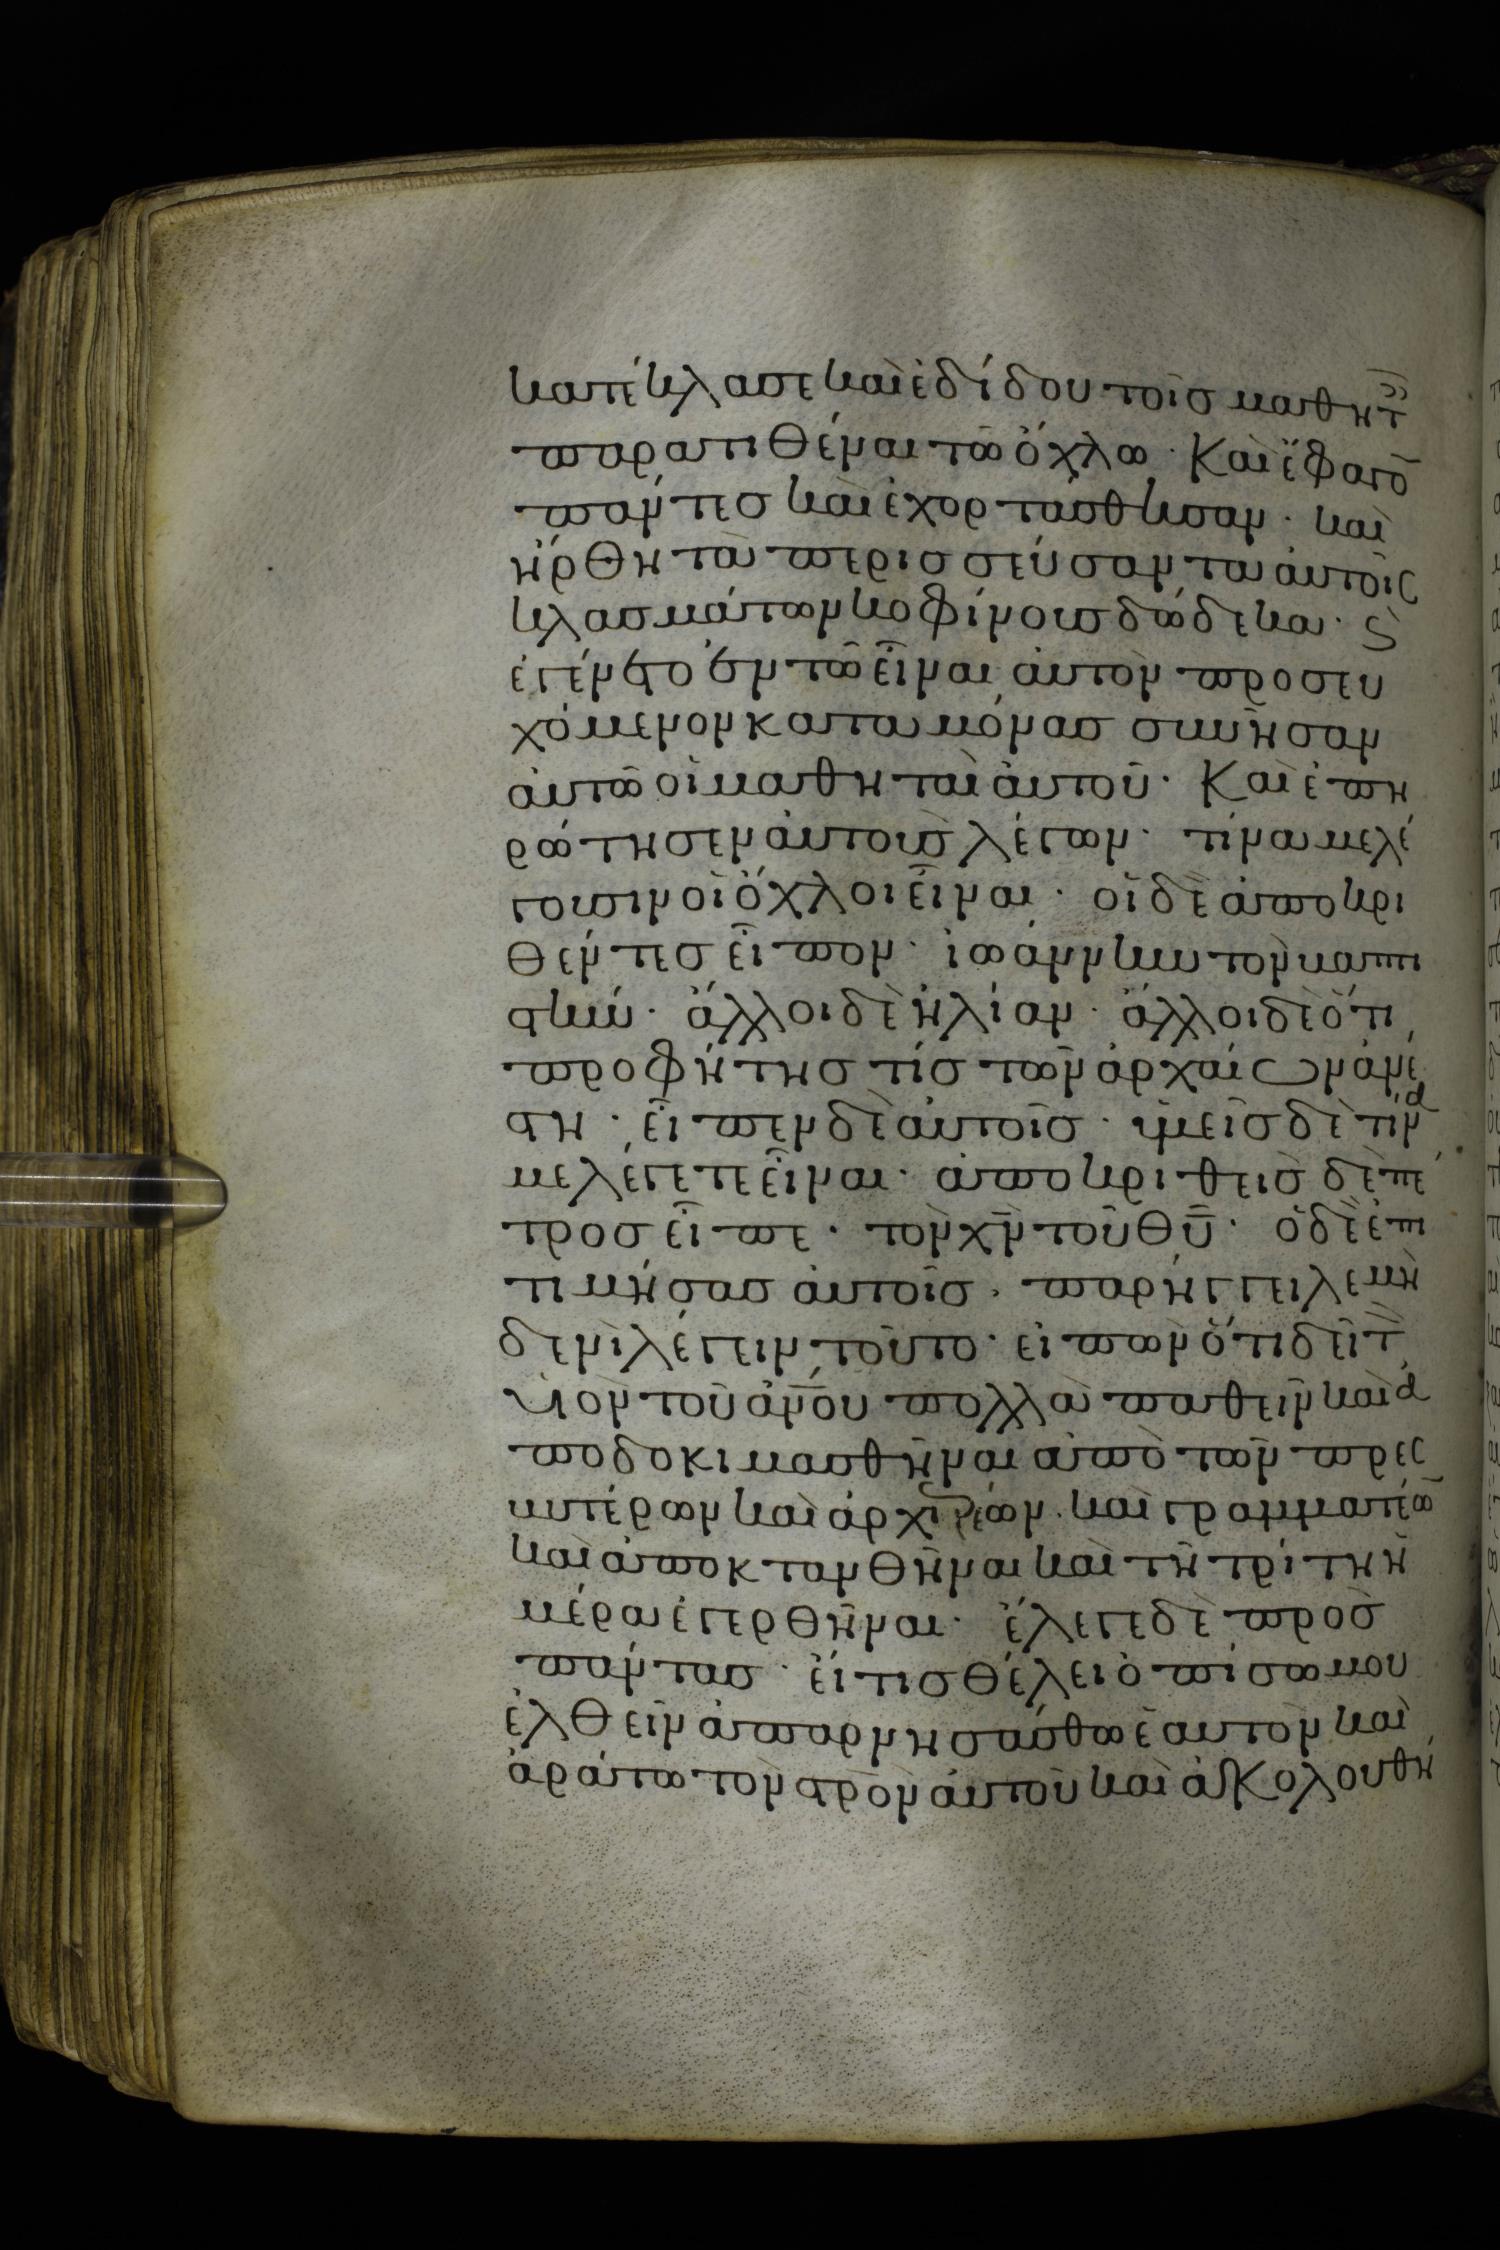 κατέκλασε καὶ ἐδίδου τοῖς μαθητ
παρατιθέναι τῶ ὄχλω · Καὶ ἔφαγο
πάντες καὶ ἐχορτάσθησαν · καὶ
ἤρθη τὸ περισσεύσαν τω ἀυτοῖς
κλασμάτων κοφίνοισ δώδεκα · ϛ
ἐγένετο ἐν τῶ εἶναι ἀυτὸν προσευ
χόμενον κατα μόνας συνῆσαν
ἀυτῶ οἱ μαθηταὶ ἀυτοῦ · Καὶ ἐπη
ρώτησεν ἀυτοὺς λέγων · τίνα με λέ
γουσιν οἱ ὄχλοι εἶναι · οἱ δὲ ἀποκρι
θέντες εἶπον · ἰωάννην τὸν βαπτι
στήν · ἄλλοι δὲ ἠλίαν · ἄλλοι δὲ ὅτι
προφήτης τίς τῶν ἀρχαίων ἀνέ
στη · εἶπεν δὲ ἀυτοῖς · ὑμεῖς δὲ τίνα
με λέγετε εἶναι · ἀποκριθεὶς δὲ πέ
τρος εἶπε · τὸν χν τοῦ θυ · ὁ δὲ ἐπι
τιμήσας ἀυτοῖς · παρήγγειλε μη
δενὶ λέγειν τοῦτο · εἰπὼν ὅτι δεῖ τ
υἱὸν τοῦ ανου πολλὰ παθεῖν καὶ ἀ
ποδοκιμασθῆναι ἀπὸ τῶν πρεσ
βυτέρων καὶ ἀρχιερέων · καὶ γραμματέω
καὶ ἀποκτανθῆναι καὶ τῆ τρίτη ἡ
μέρα ἐγερθῆναι · ἔλεγε δὲ πρὸς
πάντας · εἴ τις θέλει ὀπίσω μου
ἐλθεῖν ἀπαρνησάσθω ἑαυτὸν καὶ
ἀράτω τὸν στρον ἀυτοῦ καὶ ἀκολουθή